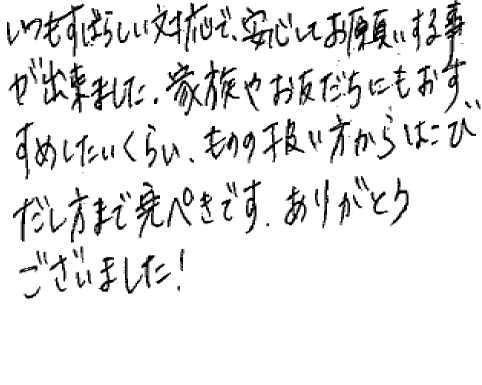 いつもすばらしい対応で、安心してお願いする事
が出来ました。家族やお友だちにもおす
すめしたいくらい、ものの扱い方からはこび
だし方まで完ぺきです。ありがとう
ございました!